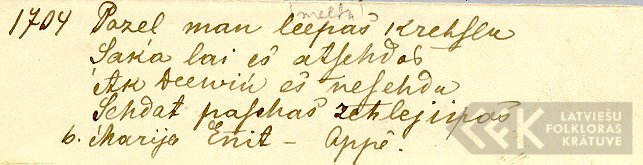 meltu
1704 Pozel man leepas krehslu
Saka lai es atsehdos
Ak Deewiņ es nesehdu
Sehdat paschas zehlejiņas
6. Marija Eņit - Appē.
LFK LATVIEŠU
FOLKLORAS
KRĀTUVE